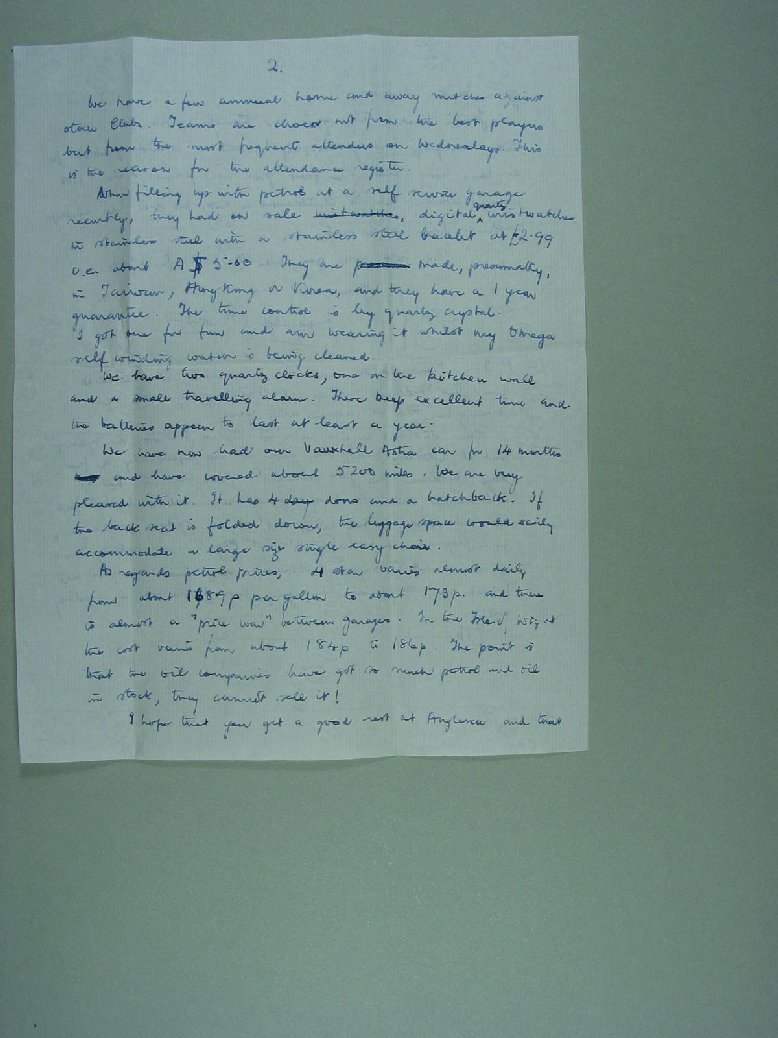 2.
We have a few annual home and away matches against
other Clubs. Teams are chosen not from the best players
but from the most frequent attenders on Wednesdays. This
is the reason for the attendance register.
When filling up with petrol at a self service garage
recently, they had on sale, digital quartz wristwatches
in stainless steel with a stainless steel bracelet at £2.99
i.e. about A $ 5-60. They are made, presumably,
in Taiwan, Hong Kong or Korea, and they have a 1 year
guarantee. The time control is by quartz crystal.
I got one for fun and am wearing it whilst my Omega
self winding watch is being cleaned.
We have two quartz clocks, one on the kitchen wall
and a small travelling alarm. These keep excellent time and
the batteries appear to last at least a year.
We have now had our Vauxhall Astra car for 14 months
and have covered about 5200 miles. We are very
pleased with it. It has 4 doors and a hatchback. If
the back seat is folded down, the luggage space would easily
accommodate a large size single easy chair.
As regards petrol prices, 4 star varies almost daily
from about 168.9p per gallon to about 173p. and there
is almost a "price war" between garages. In the Isle of Wight
the cost varies from about 184p to 186p The point is
that the oil companies have got so much petrol and oil
in stock, they cannot sell it!
I hope that you get a good rest at Anglesea and that